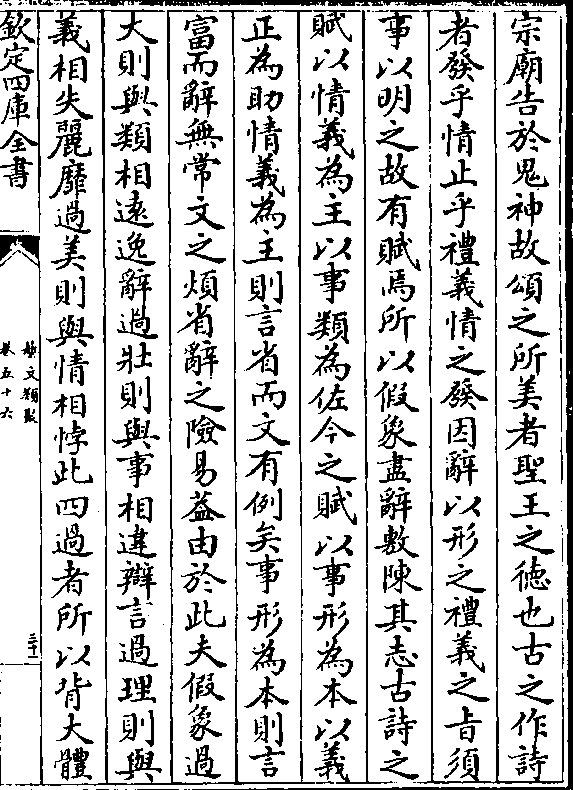 宗廟告於鬼神故頌之所美者聖王之德也古之作詩
者發乎情止乎禮義情之發因辭以形之禮義之㫖須
事以明之故有賦焉所以假象盡辭敷陳其志古詩之
賦以情義為主以事類為佐今之賦以事形為本以義
正為助情義為王則言省而文有例矣事形為本則言
富而辭無常文之煩省辭之險易葢由於此夫假象過
大則與類相遠逸辭過壯則與事相違辯言過理則與
義相失麗靡過美則與情相悖此四過者所以背大體
欽定四庫全書
藝文類聚
卷五十六